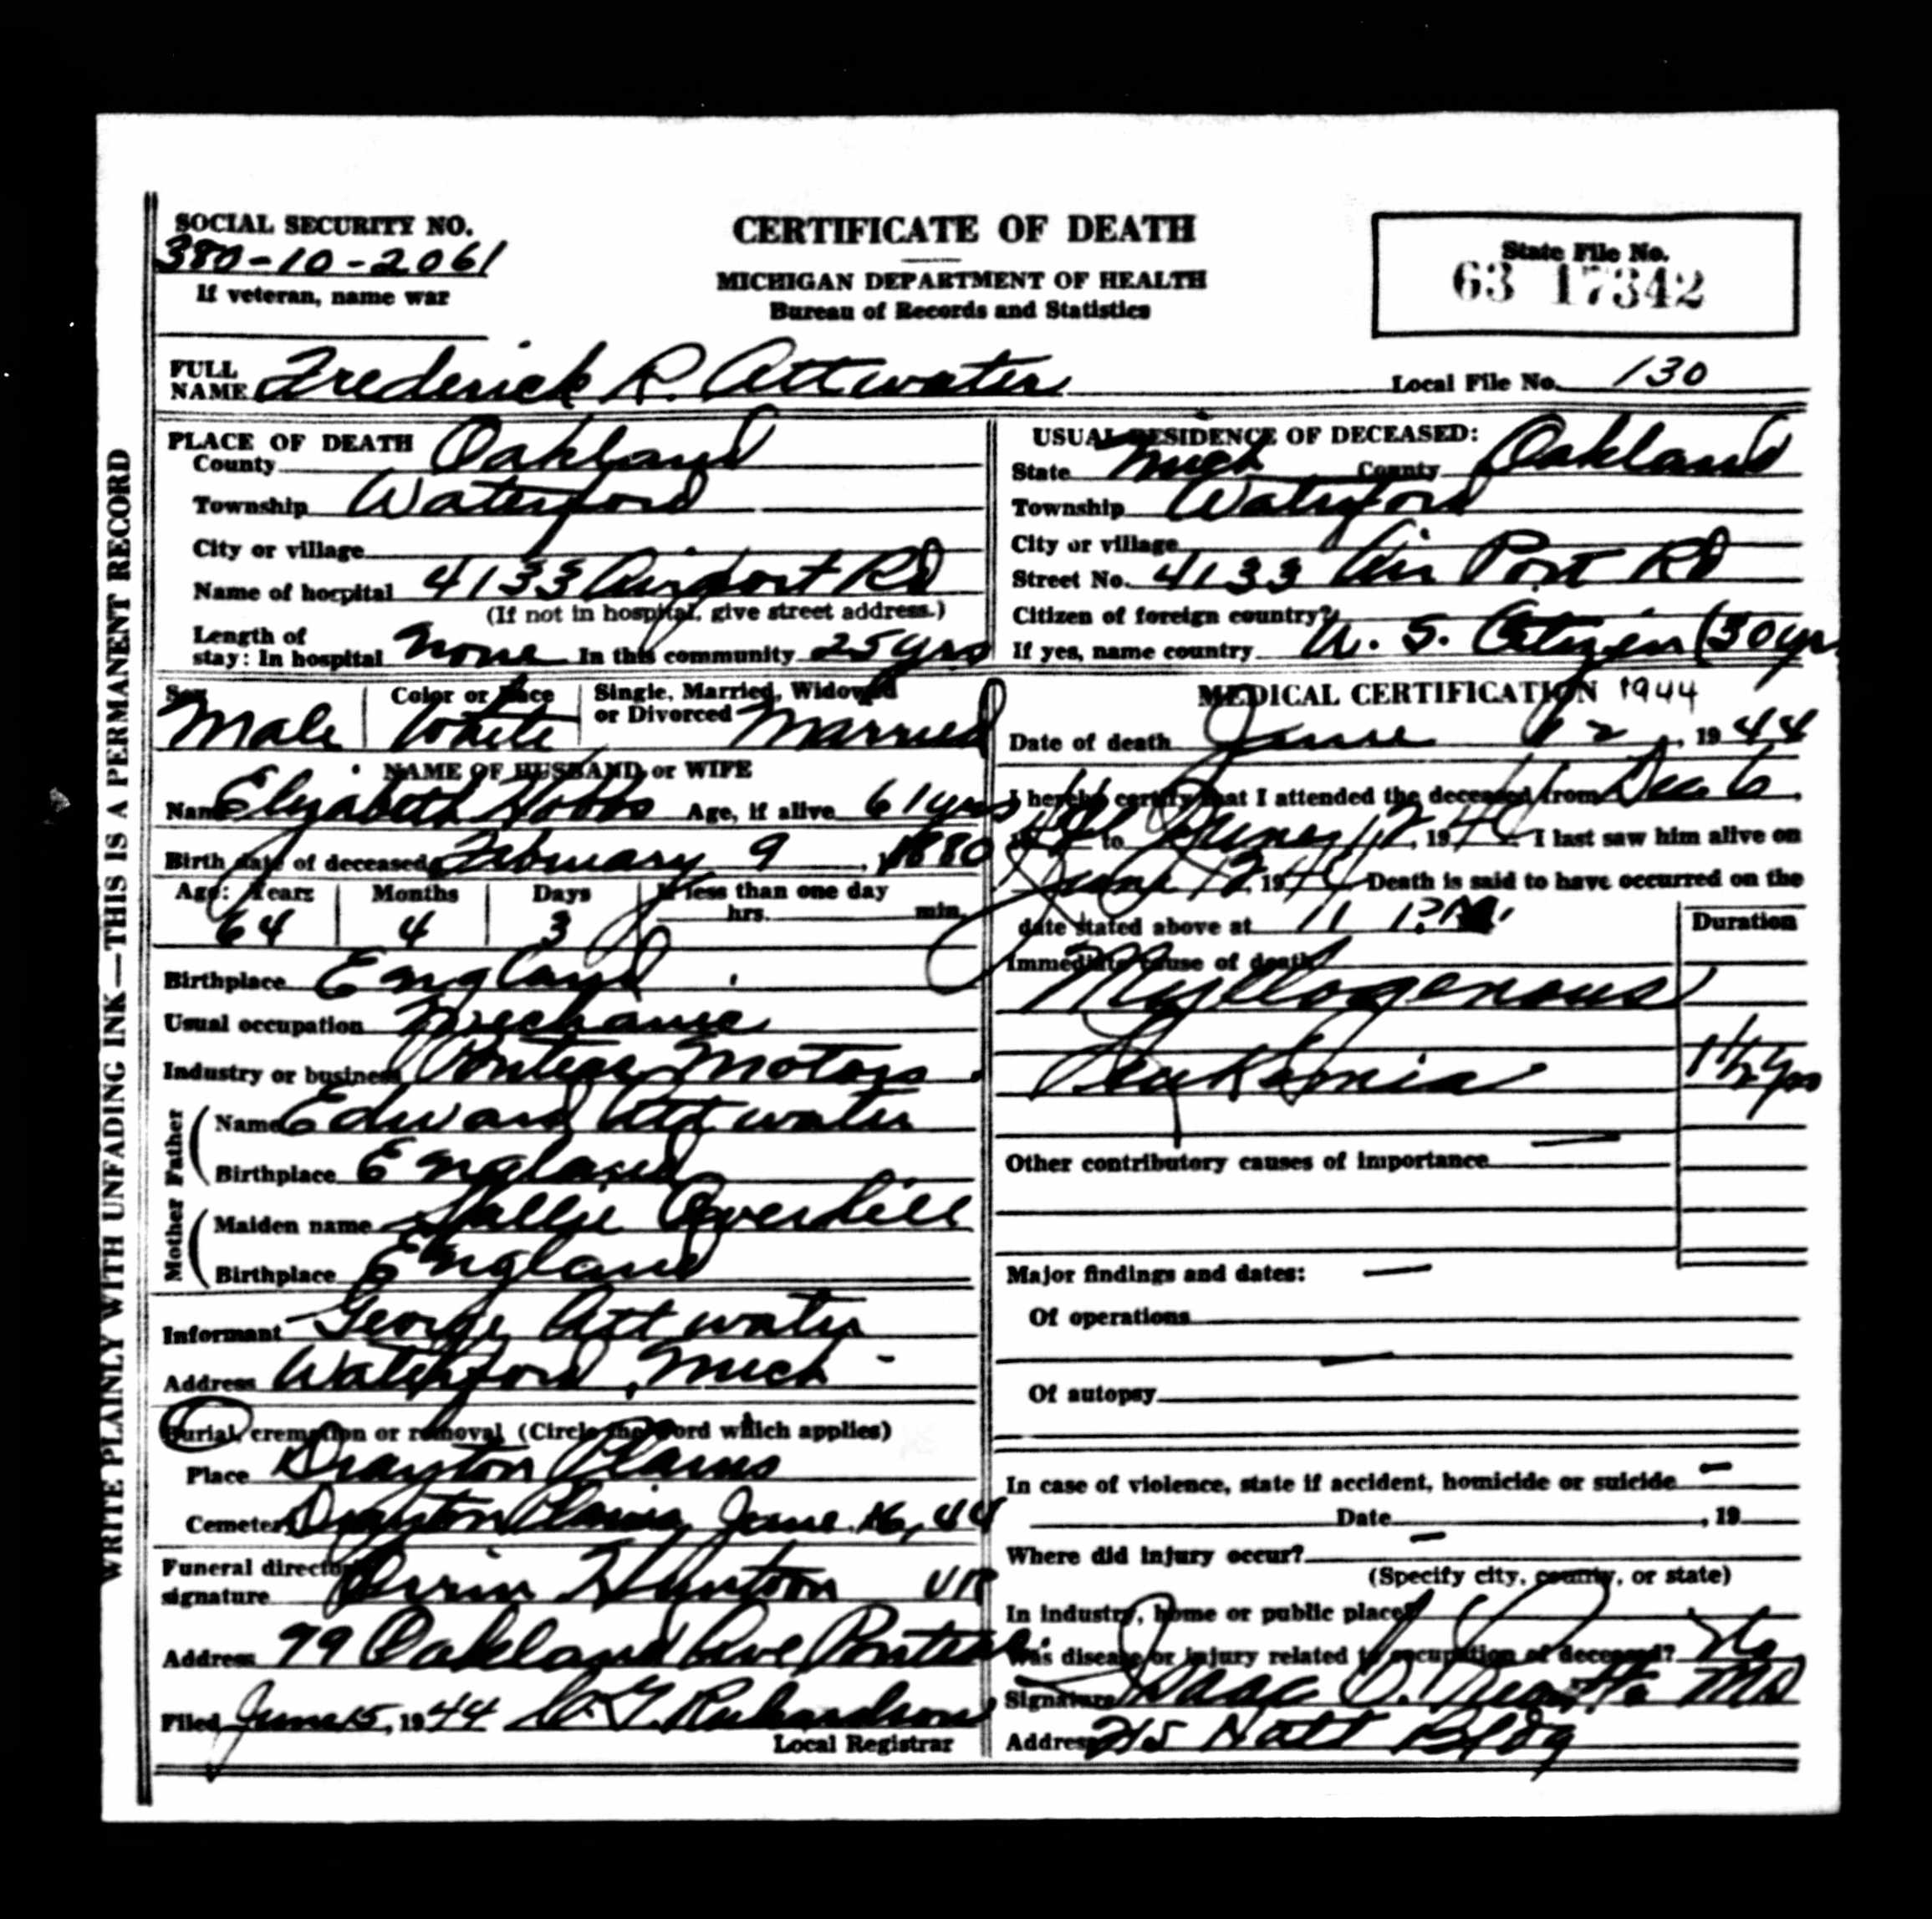 WRITE PLAINLY WITH UNFADING INK—THIS IS A PERMANENT RECORD
SOCIAL SECURITY NO.
380-10-2061
If veteran, name war
CERTIFICATE OF DEATH
MICHIGAN DEPARTMENT OF HEALTH
Bureau of Records and Statistics
State File No.
63 17342
FULL NAME Frederick R. Attwater
Local File No. 130
PLACE OF DEATH
County Oakland
Township Waterford
City or village
Name of hospital 4133 Airport Rd
(If not in hospital, give street address.)
Length of stay: In hospital None In this community 25 yrs
USUAL RESIDENCE OF DECEASED:
State Mich County Oakland
Township Waterford
City or village
Street No. 4133 Air Port Rd
Citizen of foreign country?
If yes, name country U. S. Citizen (30 yr
Sex Male
Color or Race White
Single, Married, Widowed or Divorced Married
NAME OF HUSBAND or WIFE
Name Elizabeth Hobbs Age, if alive 61 yrs
Birth date of deceased February 9, 1880
Age: Years Months Days If less than one day
64 4 3 hrs. min.
Birthplace England
Usual occupation Mechanic
Industry or business Pontiac Motors
Father
Name Edward Attwater
Birthplace England
Mother
Maiden name Sallie Overhill
Birthplace England
Informant George Attwater
Address Waterford, Mich
Burial, cremation or removal (Circle the word which applies)
Place Drayton Plains
Cemetery Drayton Plains June 16, 44
Funeral director's signature Huntoon
Address 79 Oakland Ave Pontiac
Filed June 15, 1944 Richardson
Local Registrar
MEDICAL CERTIFICATION 1944
Date of death June 12, 1944
I hereby certify that I attended the deceased from Dec 6,
to June 12, 1944 I last saw him alive on
June 12 1944 Death is said to have occurred on the
date stated above at 11 P.M.
Duration
Immediate cause of death
Myllogenous
Leukemia 1 1/2 yrs
Other contributory causes of importance —
Major findings and dates: —
Of operations
—
Of autopsy
In case of violence, state if accident, homicide or suicide —
Date , 19
Where did injury occur? —
(Specify city, county, or state)
In industry, home or public place?
Was disease or injury related to occupation of deceased? No
Signature Isaac MD
Address 715 Natt Bldg